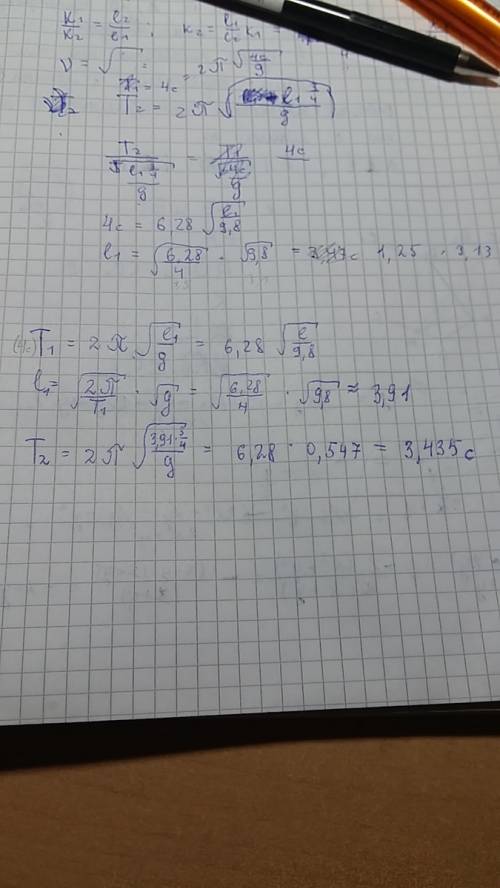 K₁/K₂ = l₂/l₁ ; K₂ = l₁/l₂ K₁ =
ν = √ = 2π √(4c/g)
T₁ = 4c
T₂ = 2π √(l₁ 3/4 / g)
T₂ / √(l₁ 3/4 / g) = T₁ 4c
4c = 6,28 √(l₁/9,8)
l₁ = √(6,28/4) · √9,8 = 1,25 · 3,13
(4c) T₁ = 2π √(l₁/g) = 6,28 √(l/9,8)
l₁ = √(2π/T₁) · √g = √(6,28/4) · √9,8 ≈ 3,91
T₂ = 2π √(3,91·3/4 / g) = 6,28 · 0,547 = 3,435c